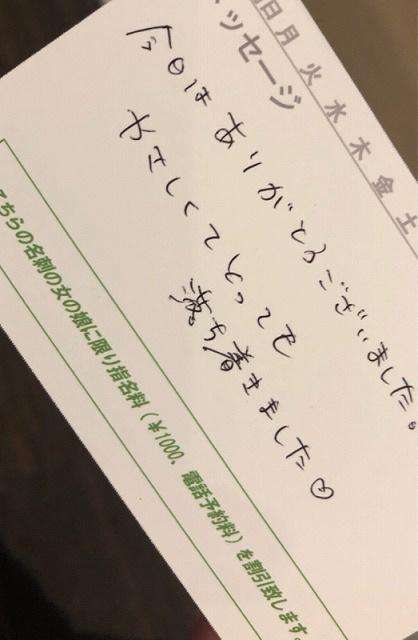 日月火水木金土
ッセージ
今日はありがとうございました。
やさしくてとっても
落ち着きました♡
こちらの名刺の女の娘に限り指名料（￥1000、電話予約料）を割引致します